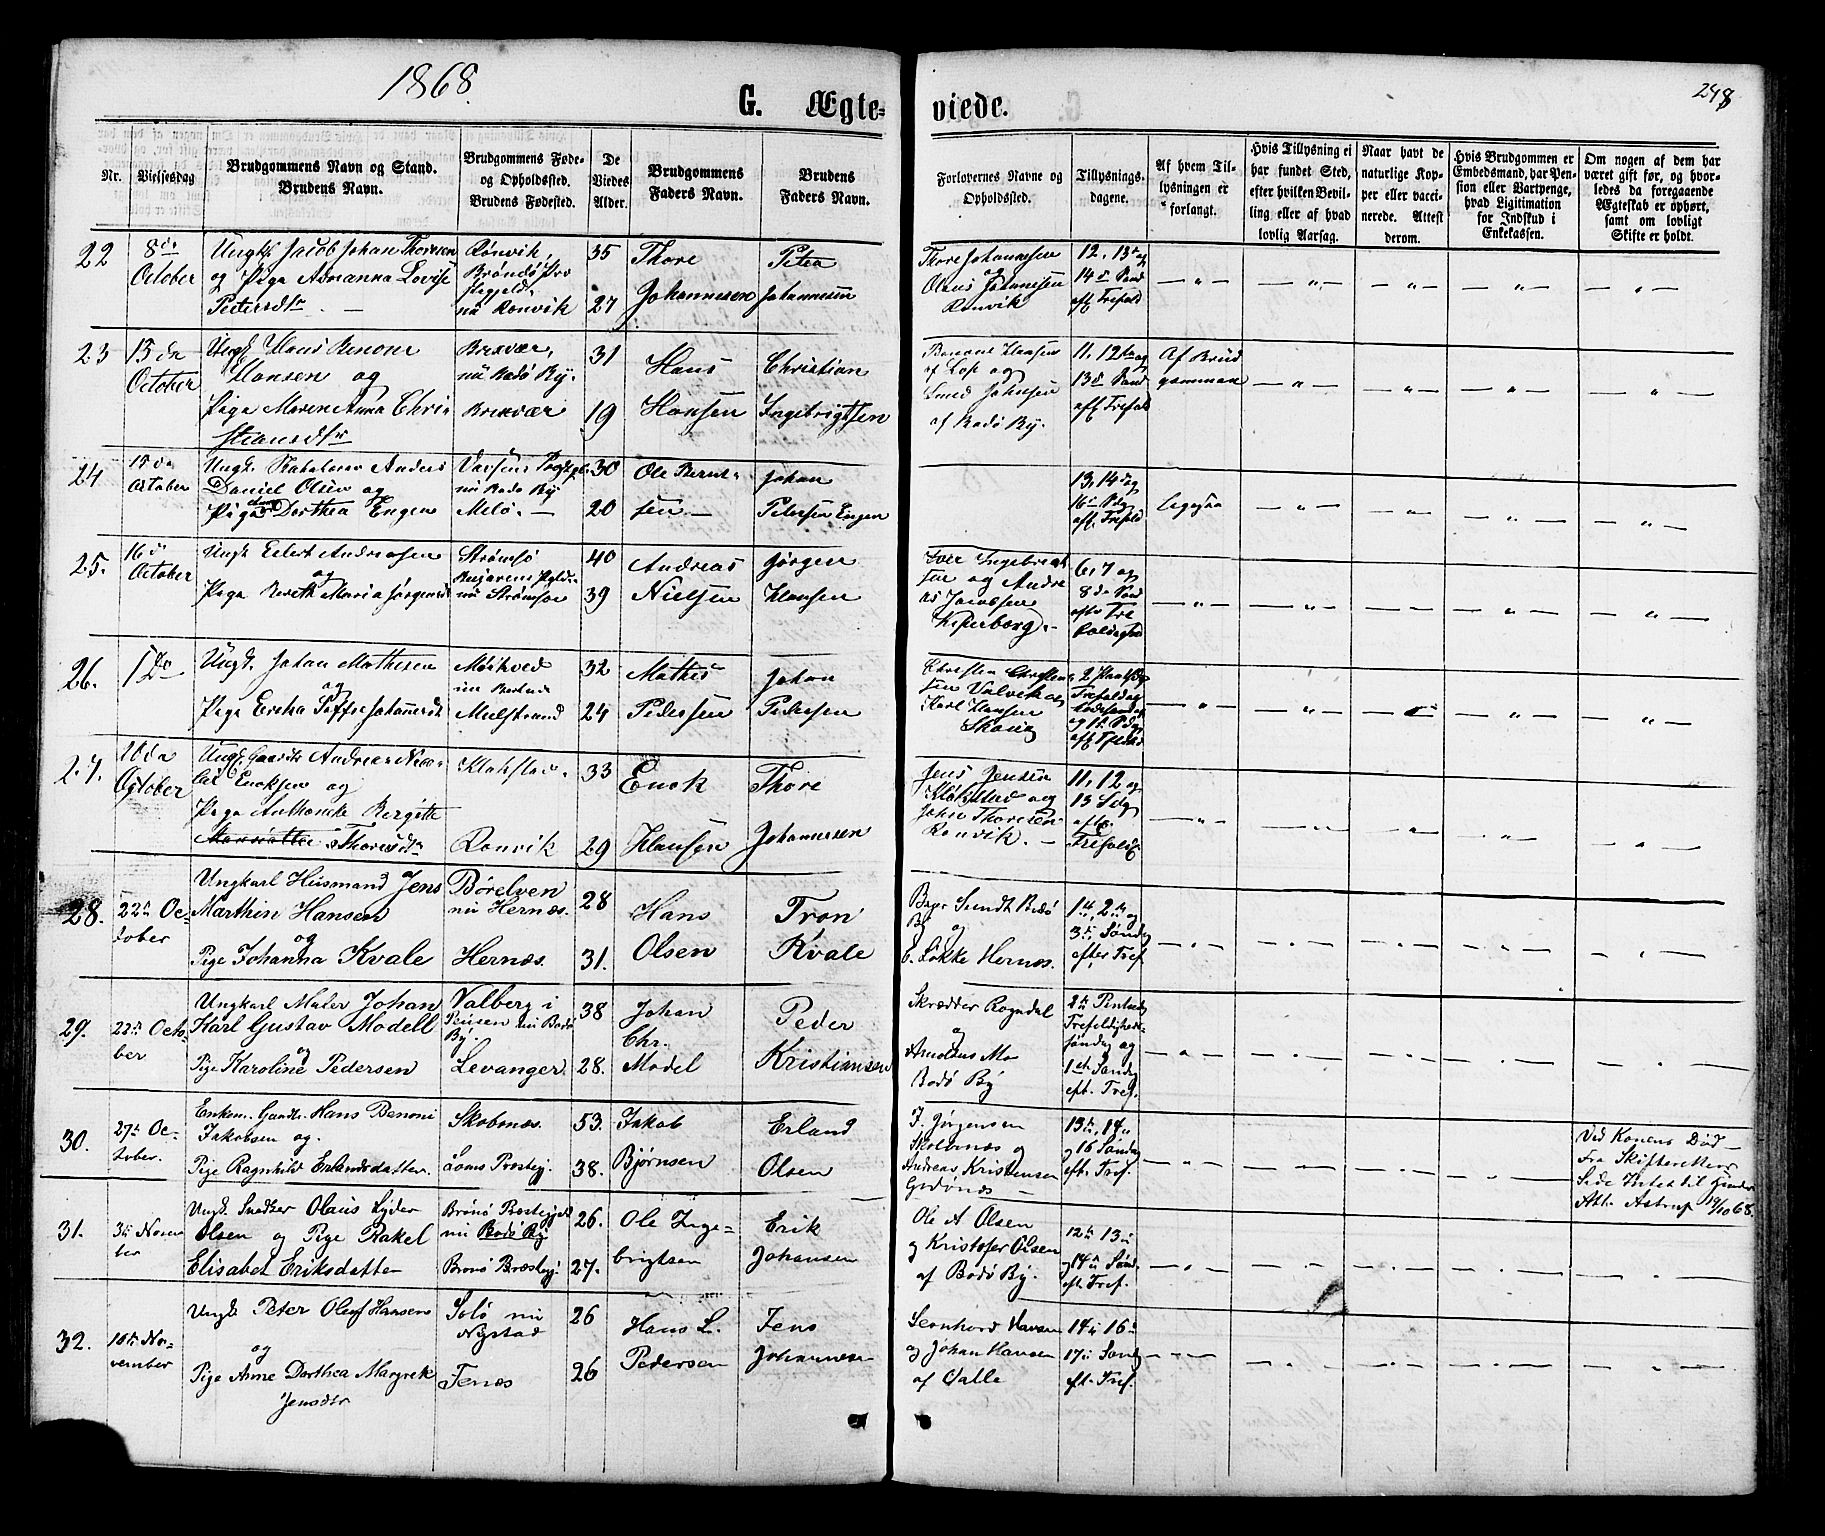 1868.
G. Ægte-
viede.
248
Nr.
Vielsesdag
Brudgommens Navn og Stand.
Brudens Navn.
Brudgommens Føde-
og Opholdssted.
Brudens Fødested.
De
Viedes
Alder.
Brudgommens
Faders Navn.
Brudens
Faders Navn.
Forlovernes Navne og
Opholdssted.
Tillysnings-
dagene.
Af hvem Til-
lysningen er
forlangt.
Hvis Tillysning ei
har fundet Sted,
efter hvilken Bevil-
ling eller af hvad
lovlig Aarsag.
Naar havt de
naturlige Kop-
per eller vacci-
nerede. Attest
derom.
Hvis Brudgommen er
Embedsmand, har Pen-
sion eller Vartpenge,
hvad Legitimation
for Indskud i
Enkekassen.
Om nogen af dem har
været gift før, og hvor-
ledes da foregaaende
Ægteskab er ophørt,
samt om lovligt
Skifte er holdt.
22
8de
October
Ungk. Jacob Johan Thoresen
og Pige Adrianna Lovise
Petersdtr
Rønvik,
Brøndø
nu Rønvik
35
27
Thore
Johannesen
Peter
Johannesen
Thore Johannesen
og
Olaus Johannesen
Rønvik
12, 13 og
14 Sønd
aft Trefold
23
15de
October
Ungk. Hans Benoni
Hansen og
Pige Maren Anna Chri-
stiansdtr
Brexvær,
nu Bodø By.
Brexvær
31
19
Hans
Hansen
Christian
Ingebrigtsen
Hansen
af Lop og
Johnsen
af Bodø By.
11, 12te og
13 Sønd
aft Trefold
Af Brud
gommen
24
15de
October
Ungk. Anders
Daniel Olsen og
Pige Dorthea Engen
nu Bodø By
Melø
30
20
Ole Bernt-
sen
Johan
Petersen Engen
13, 14 og
16 Sdg
aft. Trefold
Ligesaa
25.
16de
October
Ungk. Eilert Andreasen
og
Pige Berith Maria Jørgensdt
Strømsø
nu Strømsøe
40
39
Andreas
Nielsen
Jørgen
Hansen
Iver Ingebrigt
sen og Andre
as Jacobsen
Kjerborg
6, 7 og
8de Sønd
efter Tre
foldighed
26.
1 Do
Ungk. Johan Mathesen
og
Pige Ereka Johannesdt
Mørkved
Mulstrand
32
24
Mathis
Pedersen
Johan
Pedersen
Christen Christen
sen Valvik og
Karl Hansen
Skaug
2
Trefoldig
og 1te Sdg
aft Trefold
27.
16de
October
Ungk. Andreas Nico-
lai Enoksen og
Pige Anthonette Bergitte
Thoresdtr
Klokstad
Rønvik
33
29
Enok
Hansen
Thore
Johannessen
Jens Jensen
Klokstad og
John Thoresen
Rønvik.
11, 12 og
13 Sdg
efter
Trefoldg
28.
22de Oc-
tober
Ungkarl Husmand Jens
Marthin Hansen
og
Pige Johanna Kvale
Børelven
nu Hernæs.
Hernæs.
28
31.
Hans
Olsen
Tron
Kvale
Sundt Bodø
By og
E. Løkke Hernæs.
1ste, 2den og
3die Søndg
efter Tref.
29.
22de Octo-
ber
Ungkarl Maler Johan
Karl Gustav Modell
og
Pige Karoline Pedersen
Valberg i
nu Bodø
By.
Levanger.
38
28.
Johan
Chr.
Model
Peder
Kristiansen
Skrædder Rogndal
og
Arnoldus Mo
Bodø By
2den Pintsedg
Trefoldigheds-
søndag og
1ste Søndg
eft. Tref.
30.
27de Oc-
tober.
Enkem. Gaardbr. Hans Benoni
Jakobsen og.
Pige Ragnhild Erlandsdatter.
Skobonæs.
Loms Prestegj.
53.
38.
Jakob
Bjørnsen
Erland
Olsen
J. Jørgensen
Skobonæs og
Andreas Kristensen
Godønæs
13de, 14de
og 16 Søndg
eft. Tref.
Ved Konens Død
Fra Skifteretten
Side Intet til Hinder
Att. Astrup 19/10 68.
31.
3die Novem
ber
Ungk. Snedker Olaus Lyder
Olsen og Pige Rakel
Elisabet Eriksdatter
Brønø Prestegjeld
nu Bodø By
Brønø Præstegj.
26.
27.
Ole Inge-
brigtsen
Erik
Johansen
Ole A Olsen
og Kristofer Olsen
af Bodø By.
12te 13de
og 14de Sønd.
eft. Tref.
32.
10de No-
vember
Ungk. Peter Oluf Hansen
og
Pige Anne Dorthea Margrek
Jensdtr
Solø nu
Nystad
Fenes
26
26
Hans L.
Pedersen
Jens
Johannesen
Leonhard Hansen
og Johan Hansen
af Valle
14de 16de
17de Søndg
eft. Tref.